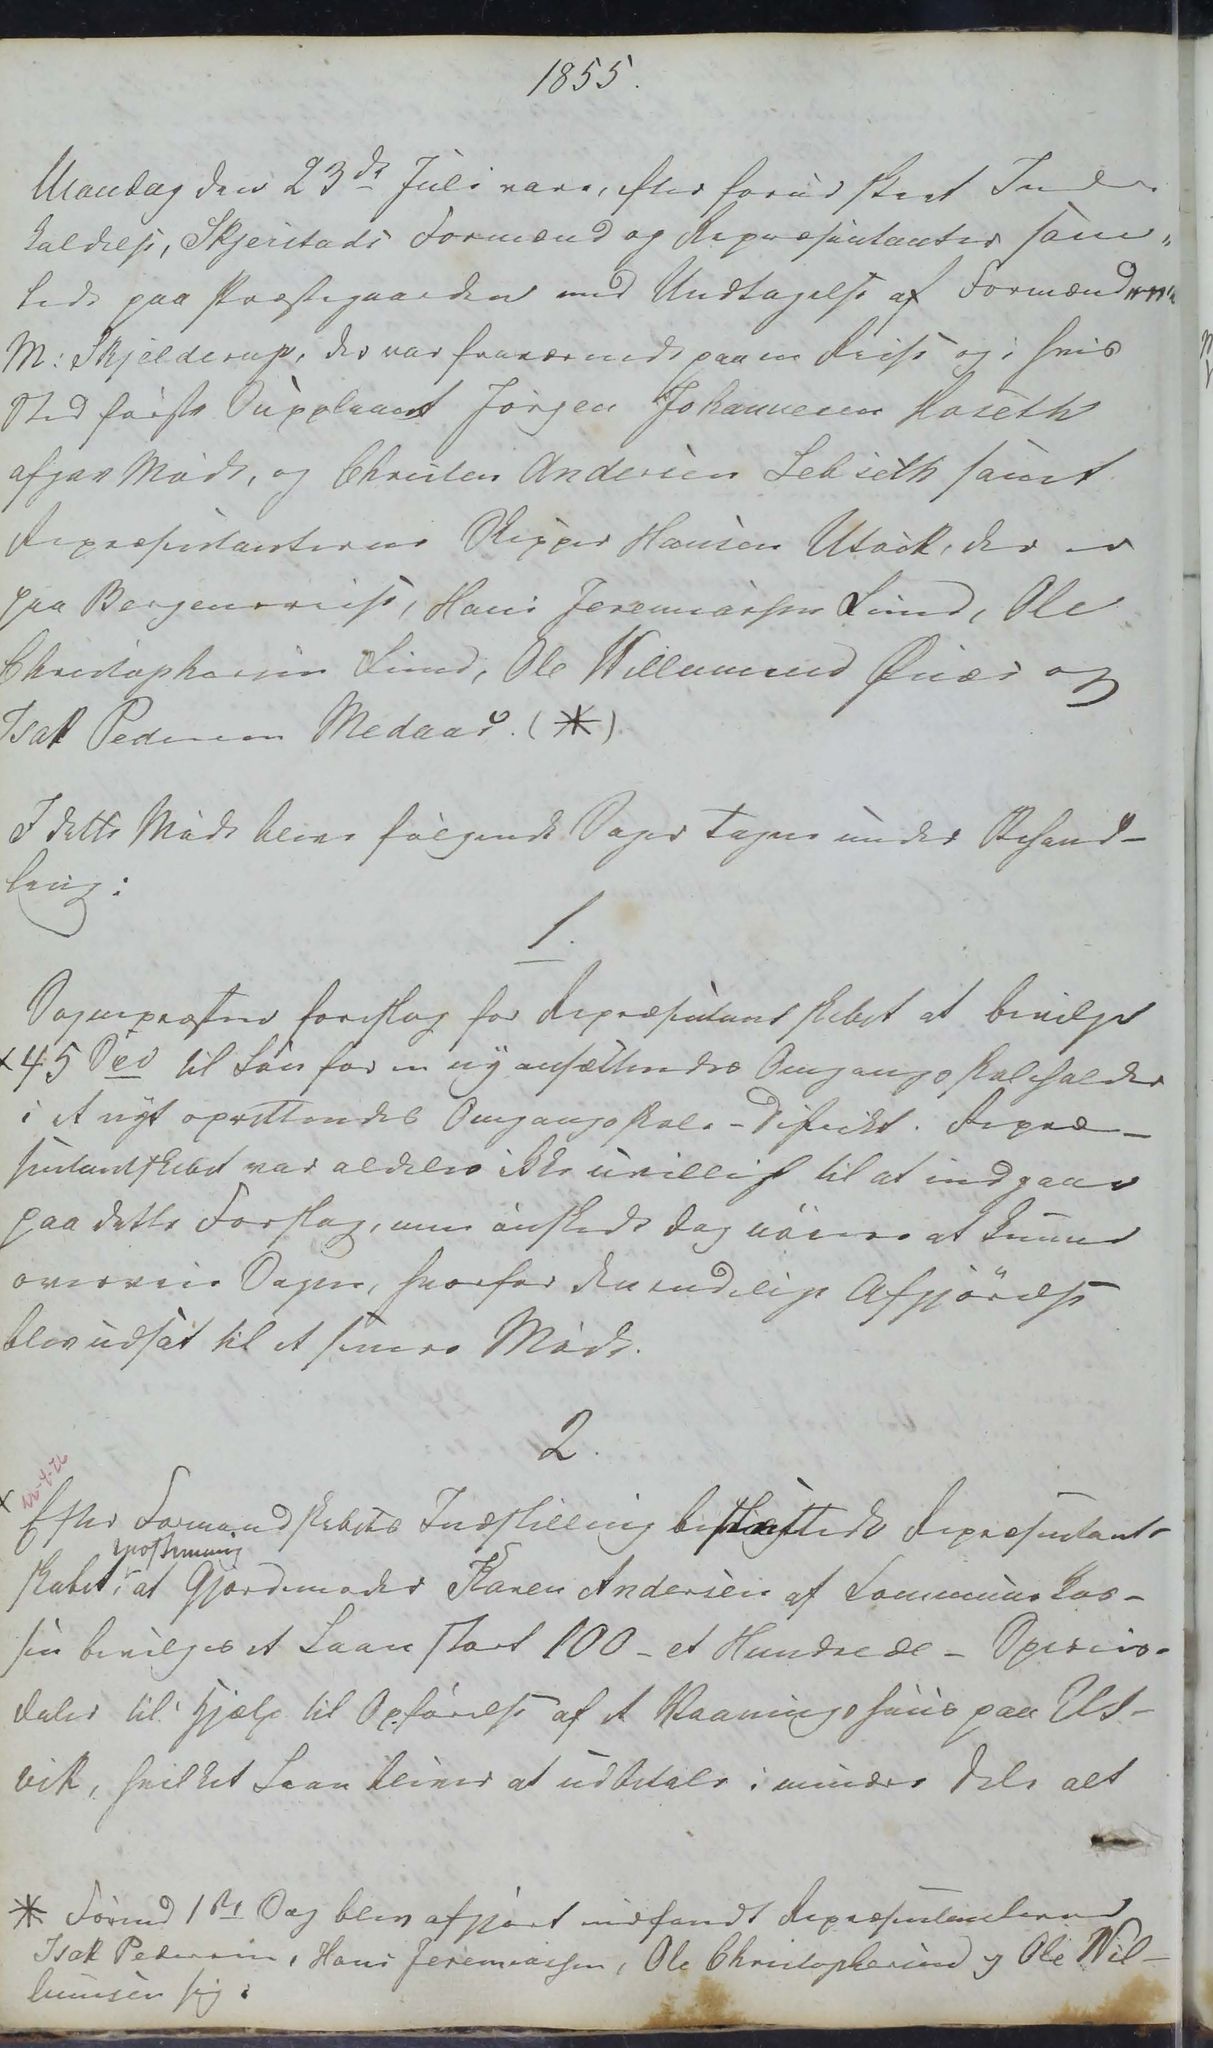 1855.
Mandag den 23de Juli vare, efter forud skeet Ind-
kaldelse, Skjerstads Formænd og Repræsentanter sam-
lede paa Præstegaarden med Undtagelse af Formænd
M: Skjelderup, der var fraværende paa en Reise og i hvis
Sted første Suppleant Jørgen Johannesen Koseth
afgav Møde, og Christen Andersen Lebseth samt
Repræsentanterne Skipper Hansen Utvik, der er
paa Bergensreise, Hans Jeremiassen Lund, Ole
Christophersen Lund, Ole Willumsen Øinæs og
Isak Pedersen Medaas. (*)
I dette Møde bleve følgende Sager tagne under Behand-
ling:
1.
Sognepræsten foreslog for Repræsentantskabet at bevilge
x 45 Spd til Løn for en ny ansættendes Omgangsskoleholder
i et nyt oprettendes Omgangsskole-Distrikt. Repræ-
sentantskabet var aldeles ikke uvilligt til at indgaae
paa dette Forslag, men ønskede dog nøiere at kunne
overveie Sagen, hvorfor den endelige Afgjørelse
blev udsat til et senere Møde.
2.
x Efter Formandskabets Indstilling besluttede Repræsentant-
skabet, at Gjordemoder Karen Andersen af Communekas-
sen bevilges et Laan stort 100 - et Hundrede - Specie-
daler til Hjælp til Opførelse af et Vaaningshuus paa Ut-
vik, hvilket Laan bliver at udbetale i mindre Dele alt
* Førend 1ste Sag blev afgjort indfandt Repræsentanterne
Isak Pedersen, Hans Jeremiassen, Ole Christophersen og Ole Wil-
lumsen sig.